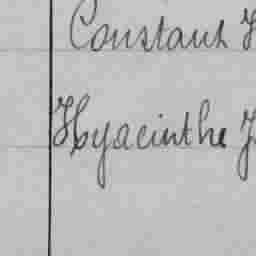 Constant
Hyacinthe